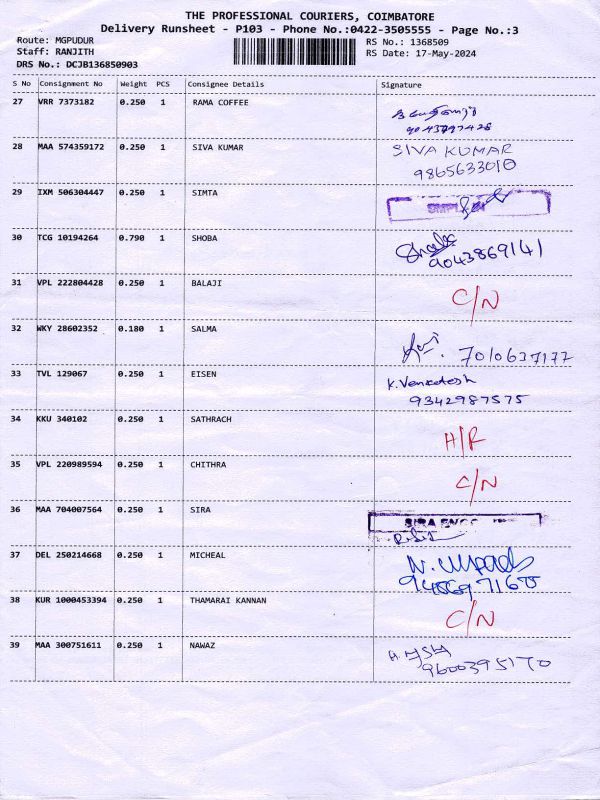 THE PROFESSIONAL COURIERS, COIMBATORE
Delivery Runsheet - P103 - Phone No.:0422-3505555 - Page No.:3
Route: MGPUDUR
RS No.: 1368509
Staff: RANJITH
RS Date: 17-May-2024
DRS No.: DCJB136850903
S No Consignment No Weight PCS Consignee Details Signature
27 VRR 7373182 0.250 1 RAMA COFFEE
28 MAA 574359172 0.250 1 SIVA KUMAR SIVA KUMAR
9865633010
29 IXM 506304447 0.250 1 SIMTA
30 TCG 10194264 0.790 1 SHOBA
9043869141
31 VPL 222804428 0.250 1 BALAJI C/N
32 WKY 28602352 0.180 1 SALMA
7010637177
33 TVL 129067 0.250 1 EISEN K. Venketesh
9342987575
34 KKU 340102 0.250 1 SATHRACH
H/R
35 VPL 220989594 0.250 1 CHITHRA C/N
36 MAA 704007564 0.250 1 SIRA
SIRA
37 DEL 250214668 0.250 1 MICHEAL
38 KUR 1000453394 0.250 1 THAMARAI KANNAN C/N
39 MAA 300751611 0.250 1 NAWAZ
9600395170